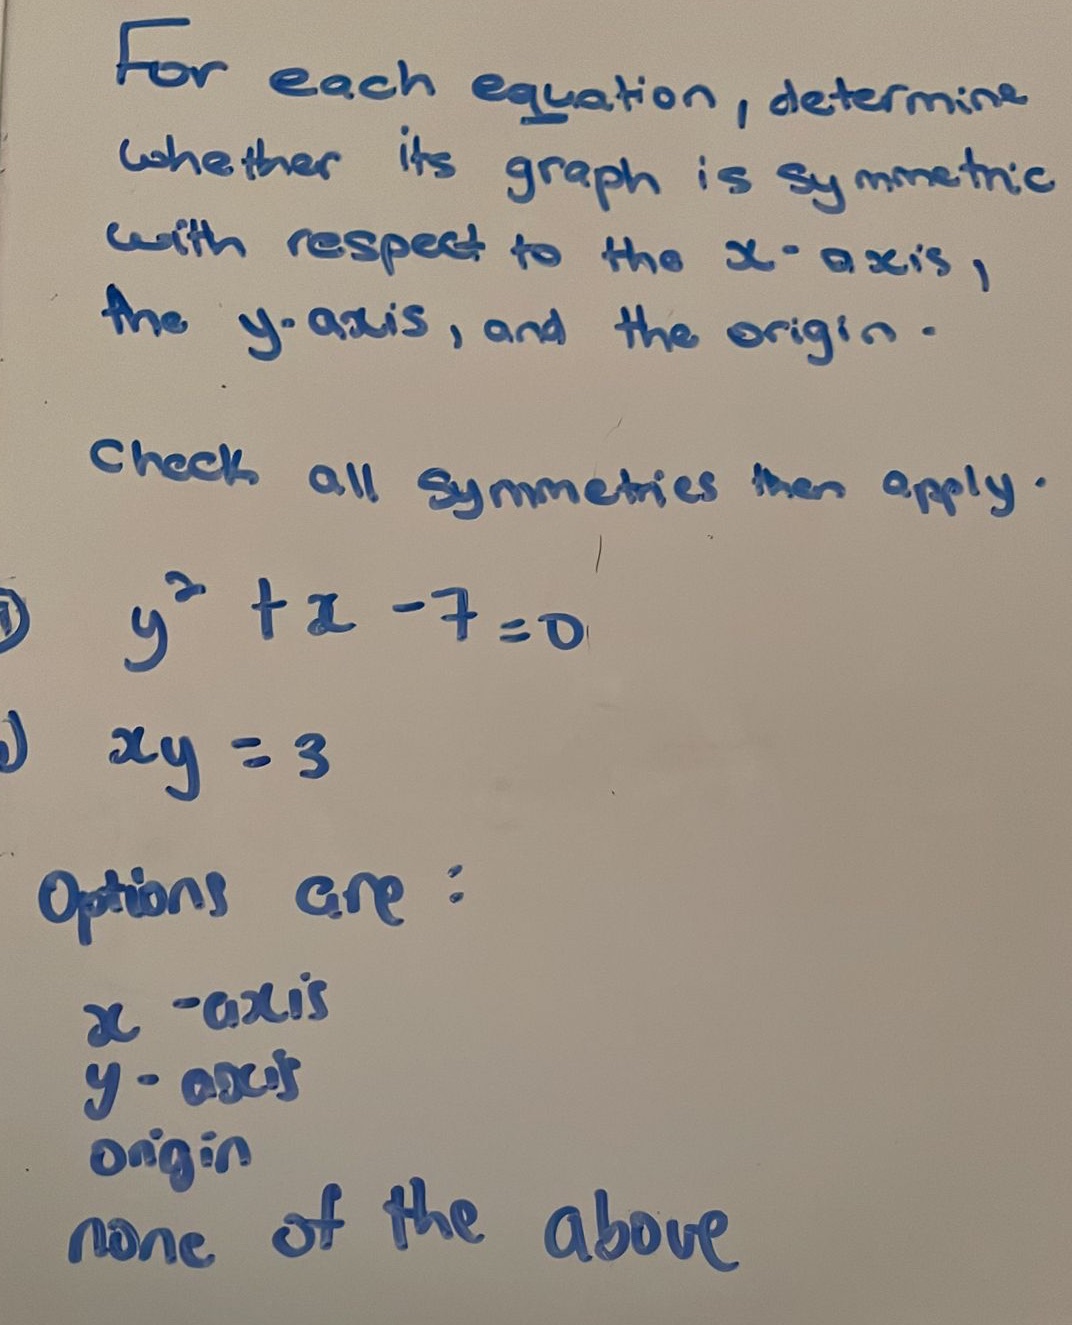 For each equation, determine
whether its graph is symmetric
with respect to the x-axis,
the y-axis, and the origin.
Check all symmetries then apply.
1) y² + x - 7 = 0
) xy = 3
Options are :
x -axis
y - axis
origin
none of the above